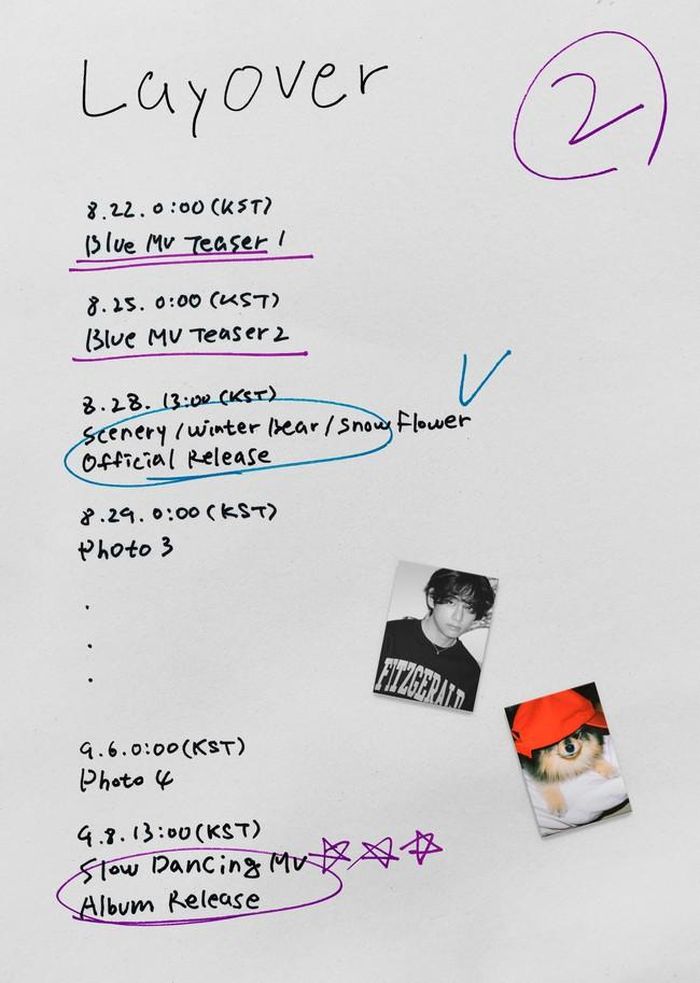 Layover
2
8.22. 0:00 (KST)
Blue MV Teaser 1
8.25. 0:00 (KST)
Blue MV Teaser 2
8.28. 13:00 (KST)
Scenery / Winter Bear / Snow Flower
Official Release
8.29. 0:00 (KST)
Photo 3
.
.
.
FITZGERALD
9.6. 0:00 (KST)
Photo 4
9.8. 13:00 (KST)
Slow Dancing MV
Album Release